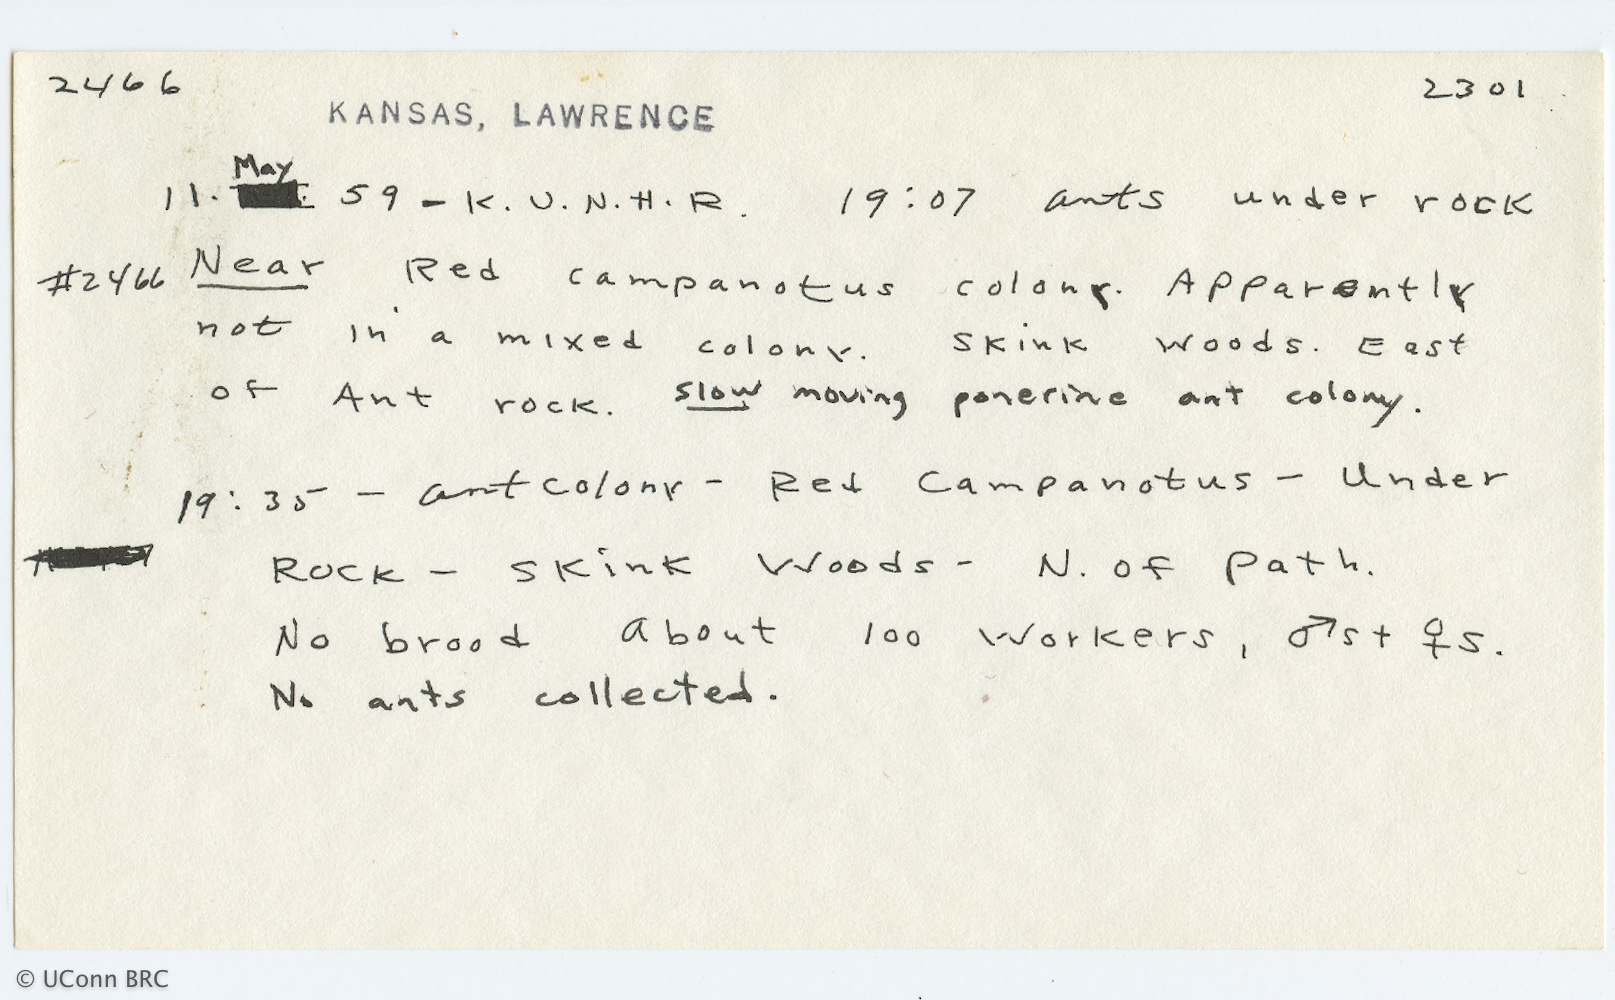 2466 2301
KANSAS, LAWRENCE
May
11. 59 - K.U.N.H.R. 19:07 ants under rock
#2466 Near Red campanotus colony. Apparently
not in a mixed colony. Skink Woods. East
of Ant rock. slow moving ponerine ant colony.
19:35 - ant colony - Red Campanotus - Under
Rock - Skink Woods - N. of path.
No brood About 100 workers, ♂s + ♀s.
No ants collected.
© UConn BRC